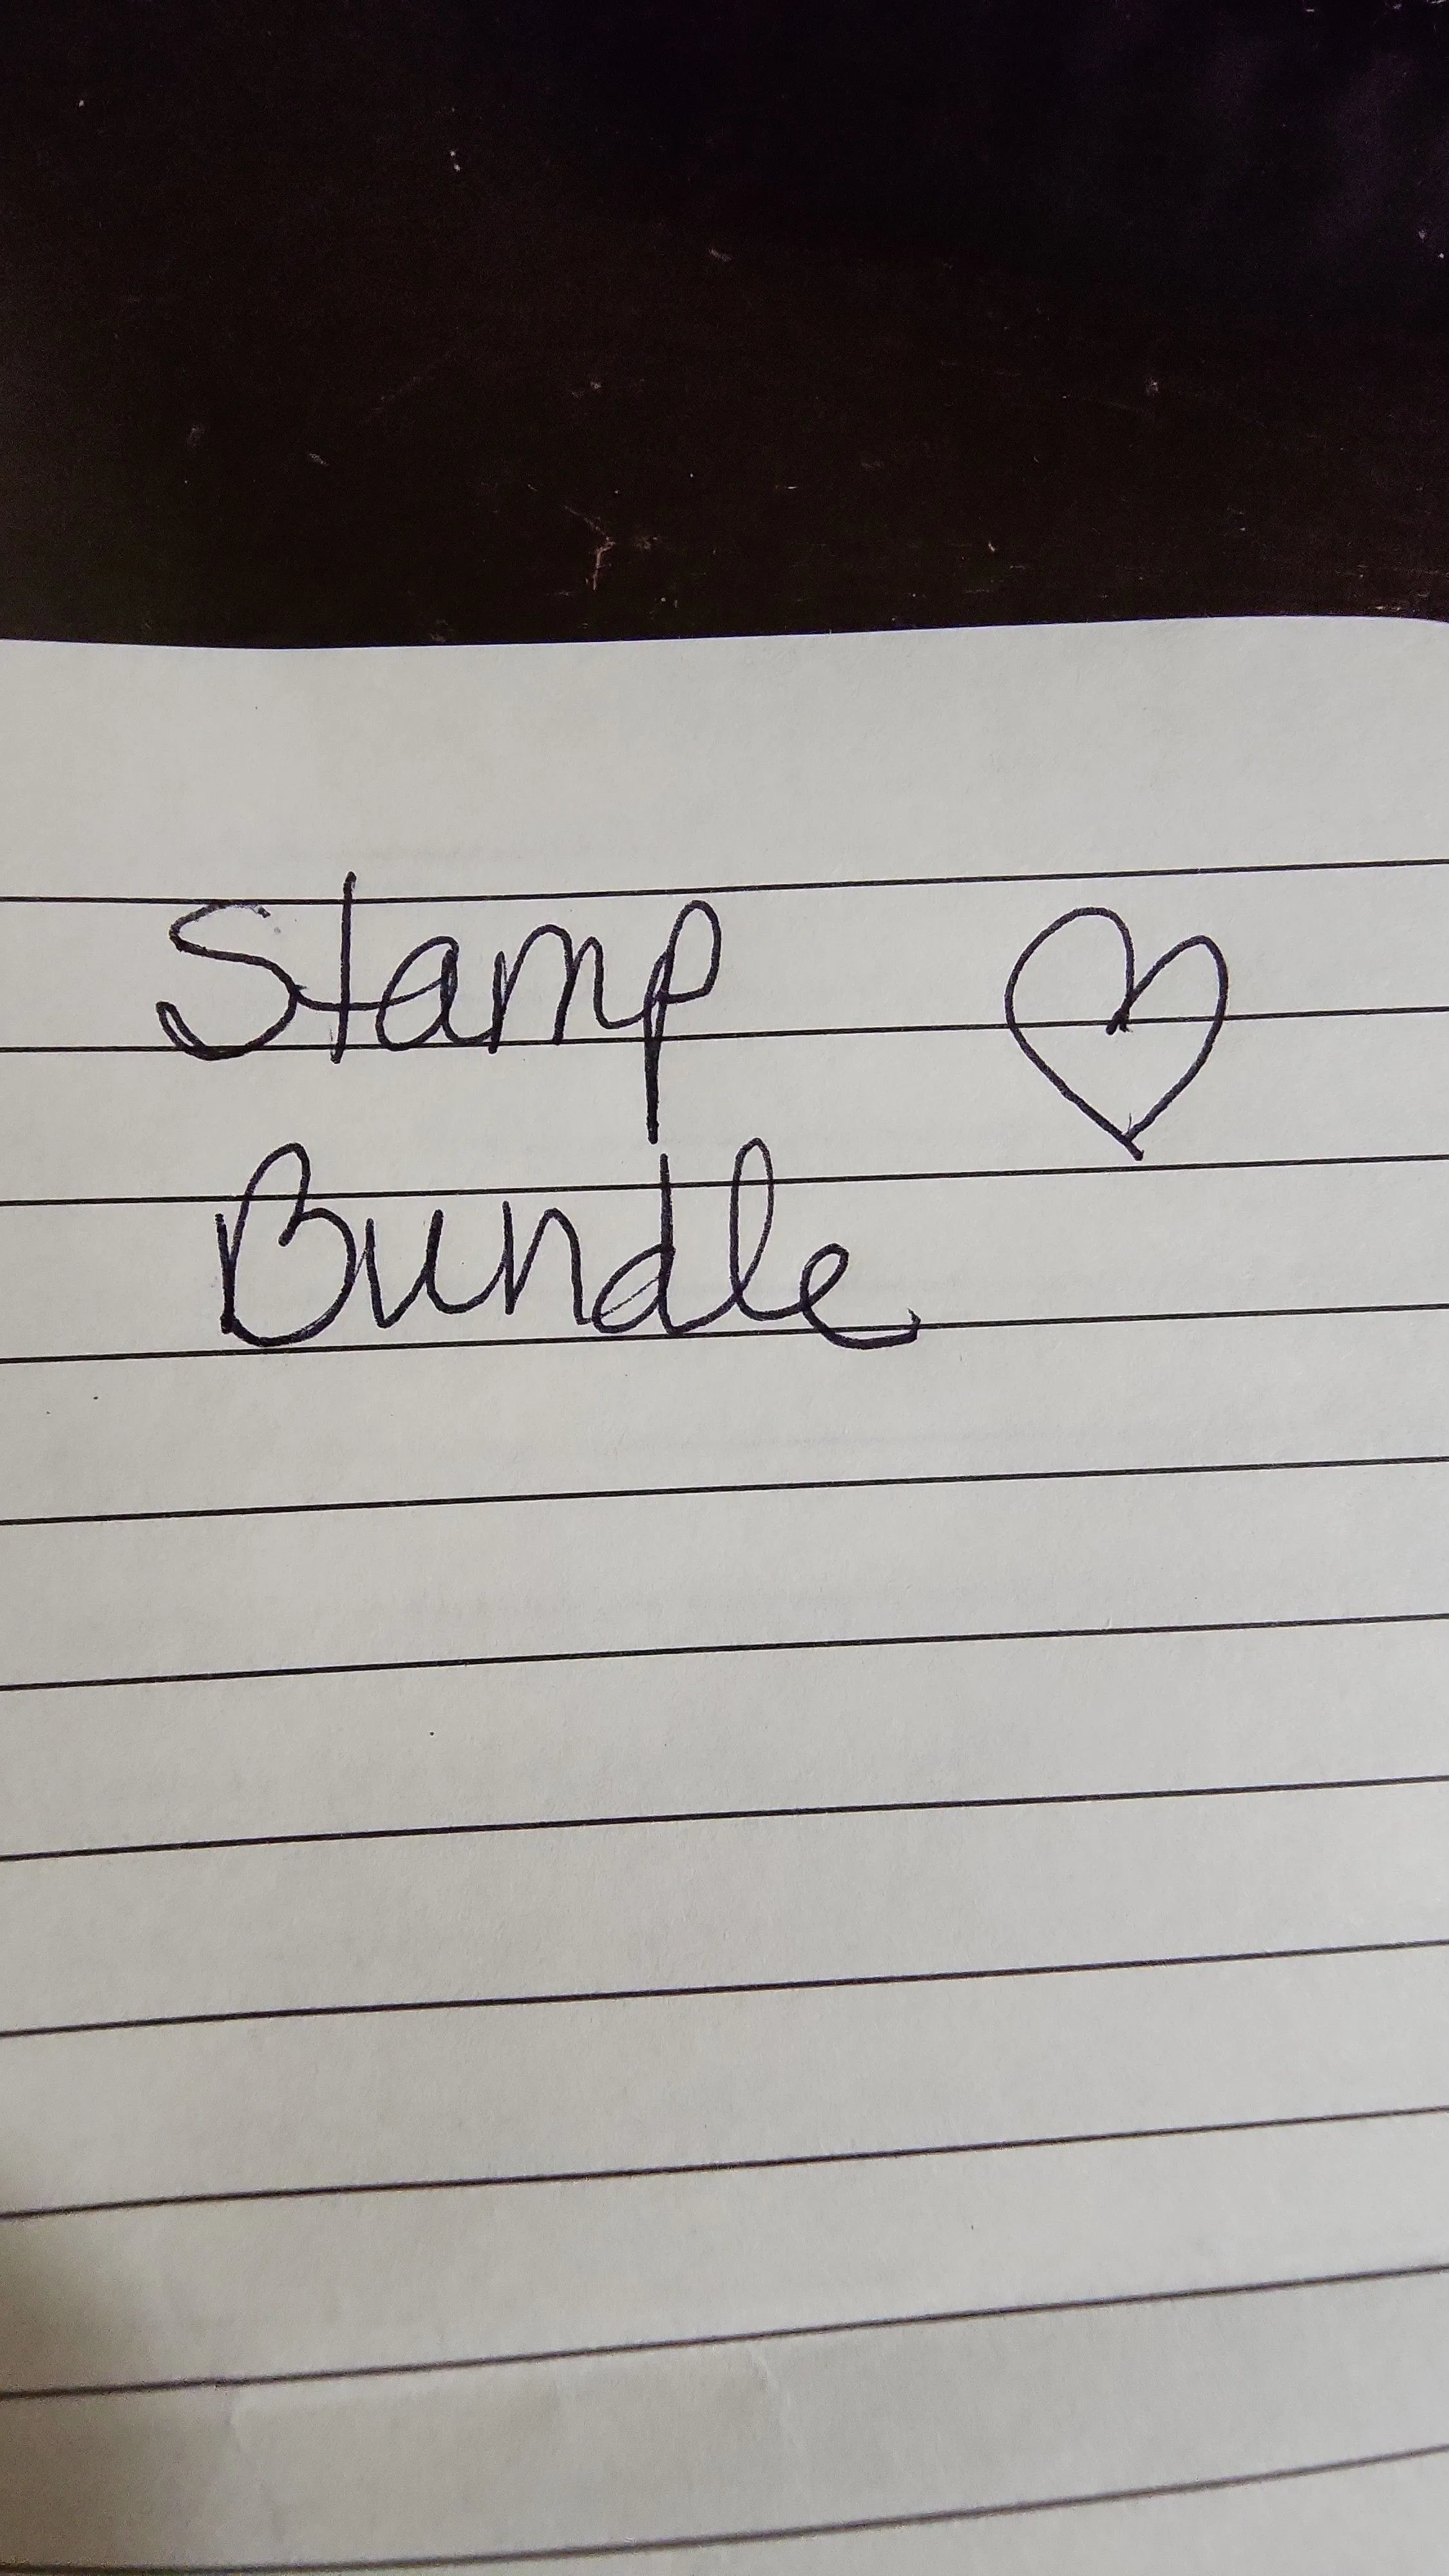 Stamp
Bundle